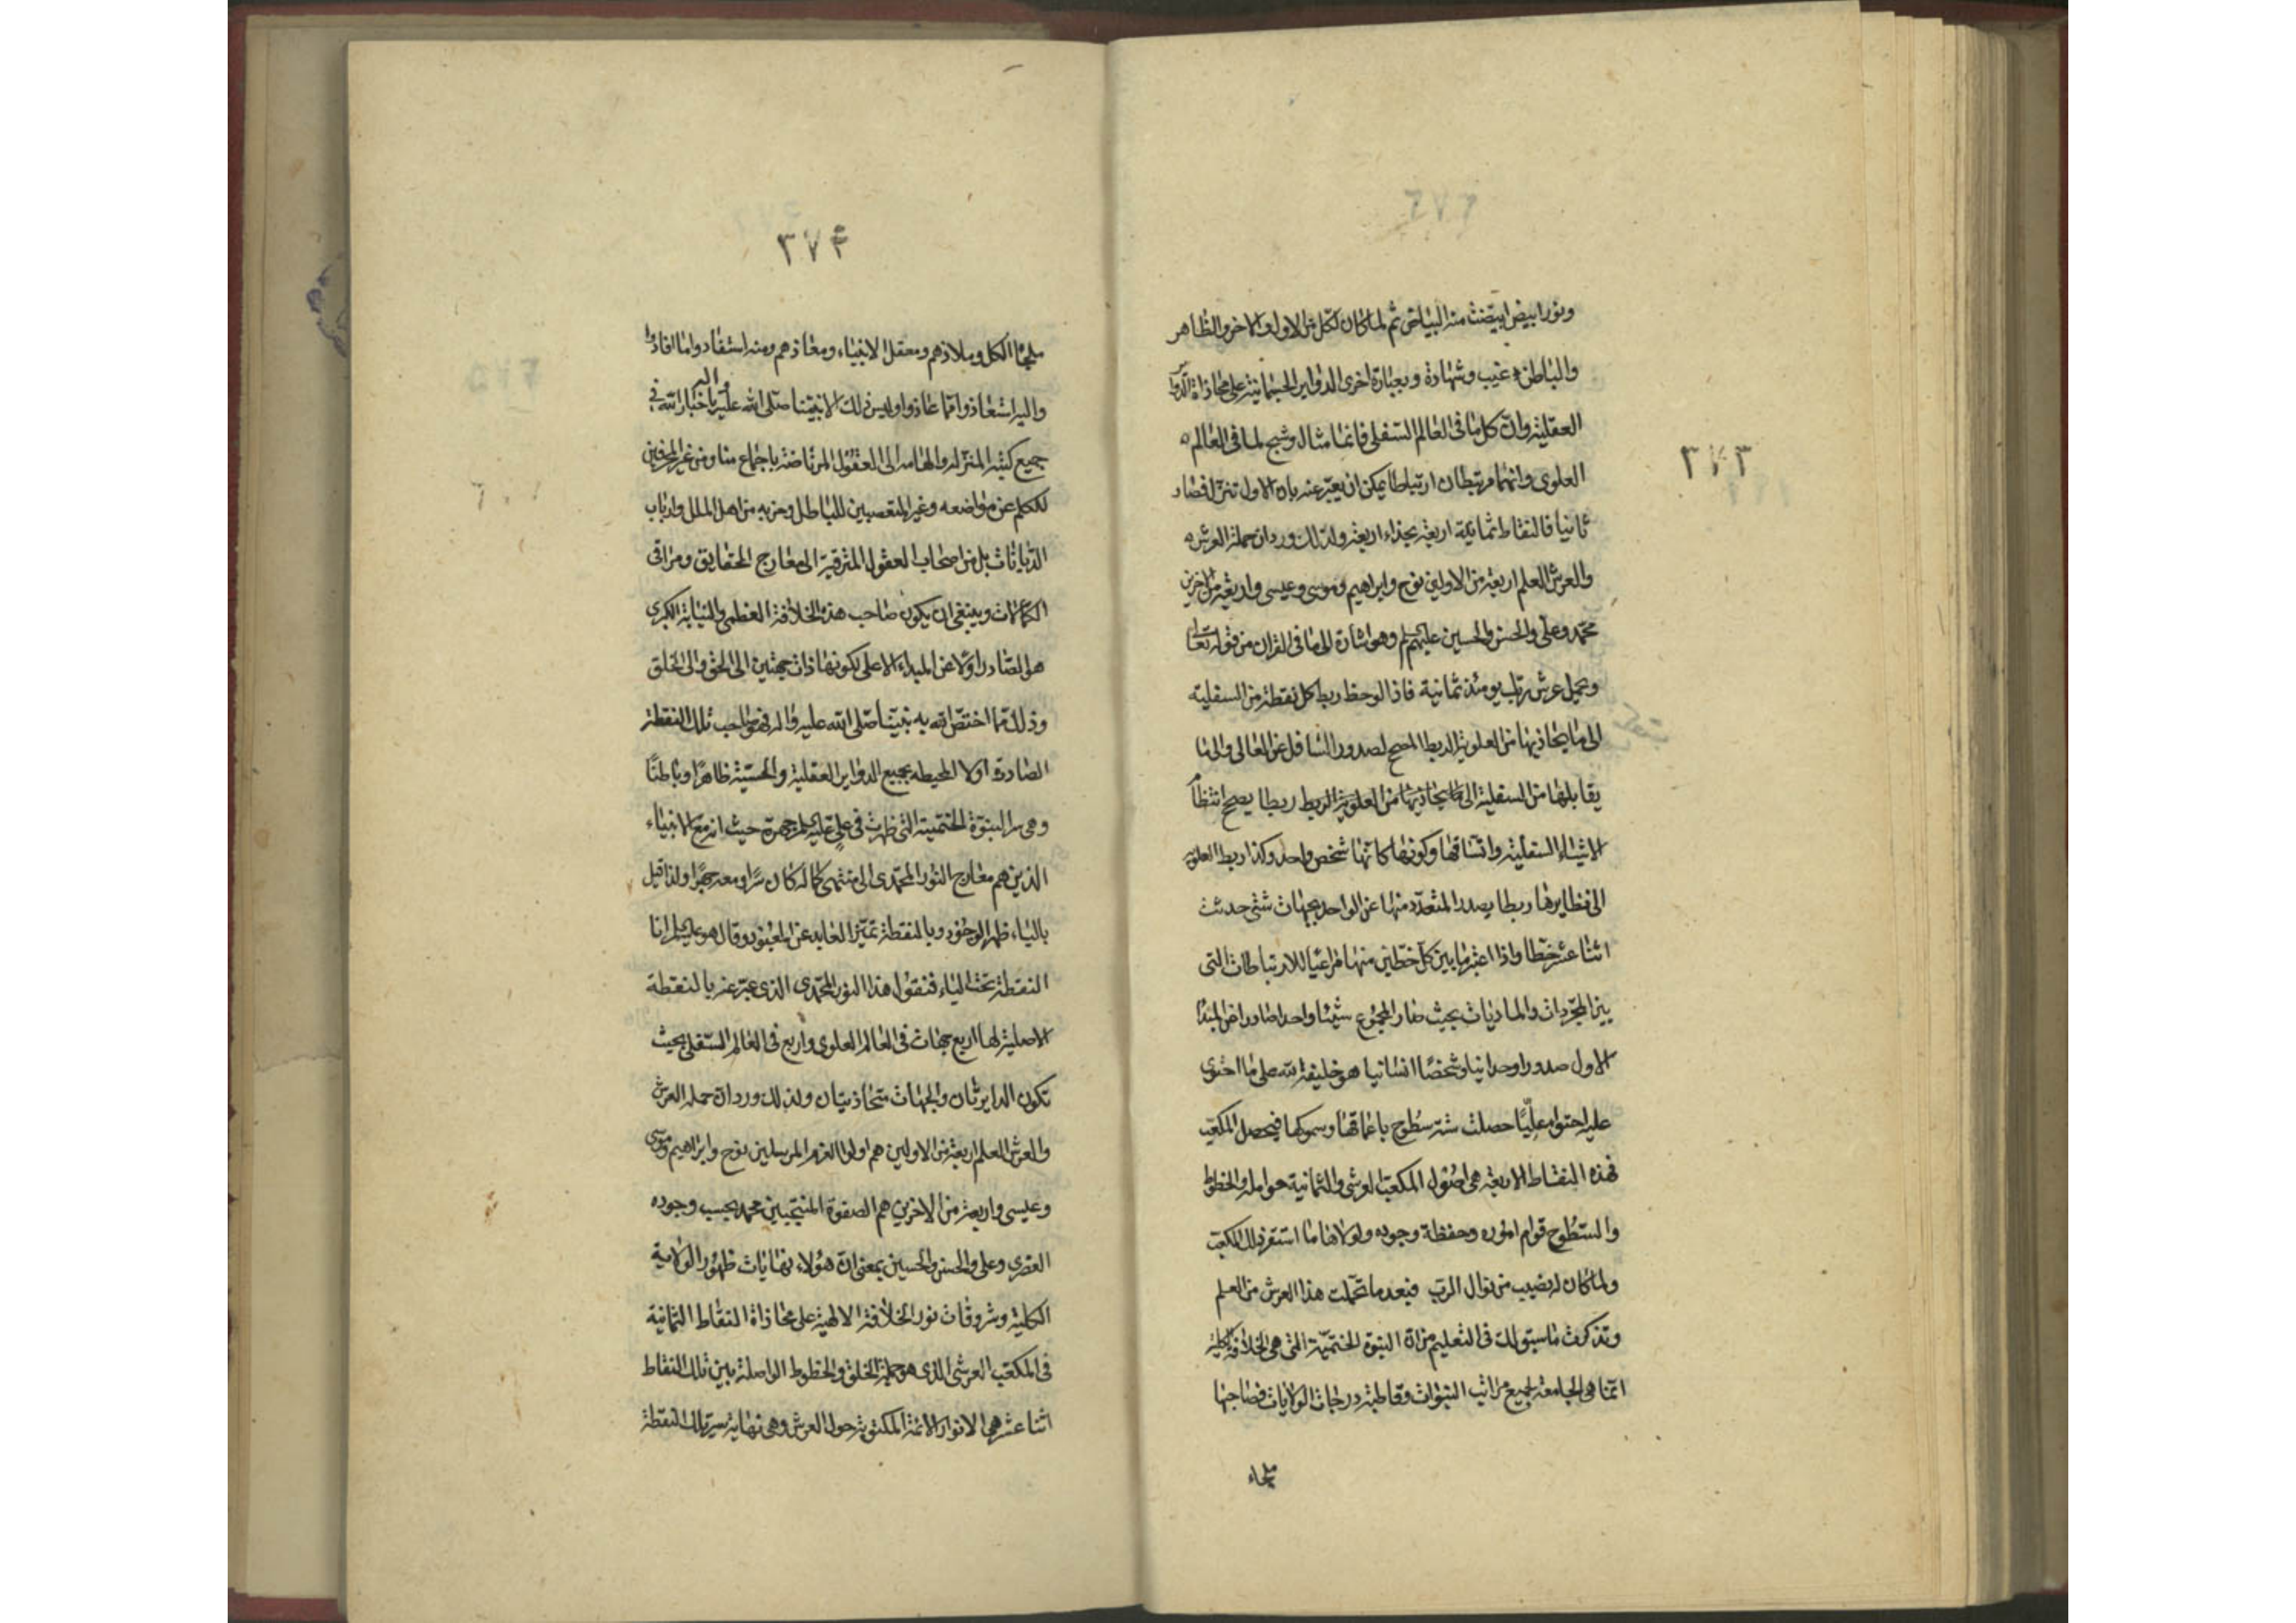 ٣٧٣
ونور ابيض ابيضت منه البياض ثم لما كان لكل من الاول والاخر والظاهر
والباطن غيب وشهادة وبعبارة اخرى الدواير الجسمانية على محاذاة الدواير
العقلية وان كل ما فى العالم السفلى فانما مثال وشبح لما فى العالم
العلوى وانهما مرتبطان ارتباطا يمكن ان يعبر عنه بان الاول تنزل فصار
ثانيا فالنقاط ثمانية اربعة بحذاء اربعة ولذلك ورد ان حملة العرش
والعرش العلم اربعة من الاولين نوح وابراهيم وموسى وعيسى واربعة من الاخرين
محمد وعلى والحسن والحسين عليهم وهو اشارة الى ما فى القران من قوله تعالى
ويحمل عرش ربك يومئذ ثمانية فاذا لوحظ ربط كل نقطة من السفلية
الى ما يحاذيها من العلوية الربط المصحح لصدور السافل عن العالى والى ما
يقابلها من السفلية الى ما يحاذيها من العلوية الربط ربطا يصحح انتظام
الاشياء السفلية واتساقها وكونها كانها شخص واحد وكذا ربط العلوية
الى نظايرها ربطا يصدر المتعدد منها عن الواحد بجهات شتى حدثت
اثنا عشر خطا واذا اعتبر ما بين كل خطين منها مراعيا للارتباطات التى
بين المجردات والماديات بحيث صار المجموع شيئا واحدا صادرا من المبدا
الاول صدورا وحدانيا وشخصا انسانيا هو خليفة الله على ما احتوى
عليه احتواء عليا حصلت ستة سطوح باعماقها وسموكها فيحصل المكعب
فهذه النقاط الاربعة هى اصول المكعب العرشى والثمانية حوامله والخطوط
والسطوح قوام اموره وحفظة وجوده ولولاها ما استقر ذلك المكعب
ولما كان له نصيب من نوال الرب فبعد ما تحملت هذا العرش من العلم
وتذكرت ما سبق لك فى التعليم من ان النبوة الختمية التى هى الخلافة الكلية
انما هى الجامعة لجميع مراتب النبوات وقاطبة درجات الولايات فصاحبها
ملجاء
٣٧٤
ملجأ الكل وملاذهم ومعقل الانبياء ومعاذهم ومنه استفادوا ما افادوا
واليه استعاذوا مما عاذوا وليس ذلك الا نبينا صلى الله عليه واله باخبار الله فى
جميع كتبه المنزلة والهامه الى العقول المرتاضة باجماع منا ومن غير المحرفين
للكلم عن مواضعه وغير المتعصبين للباطل وحزبه من اهل الملل وارباب
الديانات بل من اصحاب العقول المترقية الى معارج الحقايق ومراقى
الكمالات وينبغى ان يكون صاحب هذه الخلافة العظمى والنيابة الكبرى
هو الصادر اولا عن المبداء الاعلى لكونها ذات جهتين الى الحق والى الخلق
وذلك مما اختص الله به نبينا صلى الله عليه واله فهو صاحب تلك النقطة
الصادرة اولا المحيطه بجميع الدواير العقلية والحسية ظاهرا وباطنا
وهى سر النبوة الختمية التى ظهرت فى على عليه السلم جهرة حيث انه مع الانبياء
الذين هم معارج النور المحمدى الى منتهى كماله كان سرا ومعه جهرا ولذا قيل
بالباء ظهر الوجود وبالنقطة تميز العابد عن المعبود وقال هو عليه السلم انا
النقطة تحت الباء فنقول هذا النور المحمدى الذى عبر عنه بالنقطة
الاصلية لها اربع جهات فى العالم العلوى واربع فى العالم السفلى بحيث
تكون الدايرتان والجهات متحاذيتان ولذلك ورد ان حملة العرش
والعرش العلم اربعة من الاولين هم اولوا العزم المرسلين نوح وابراهيم وموسى
وعيسى واربعة من الاخرين هم الصفوة المنتجبين محمد بحسب وجوده
العنصرى وعلى والحسن والحسين بمعنى ان هؤلاء نهايات ظهور الولاية
الكلية وشروقات نور الخلافة الالهية على محاذاة النقاط الثمانية
فى المكعب العرشى الذى هو جملة الخلق والخطوط الواصلة بين تلك النقاط
اثنا عشر هى الانوار الائمة المكتوبة حول العرش وهى نهاية سير تلك النقطة